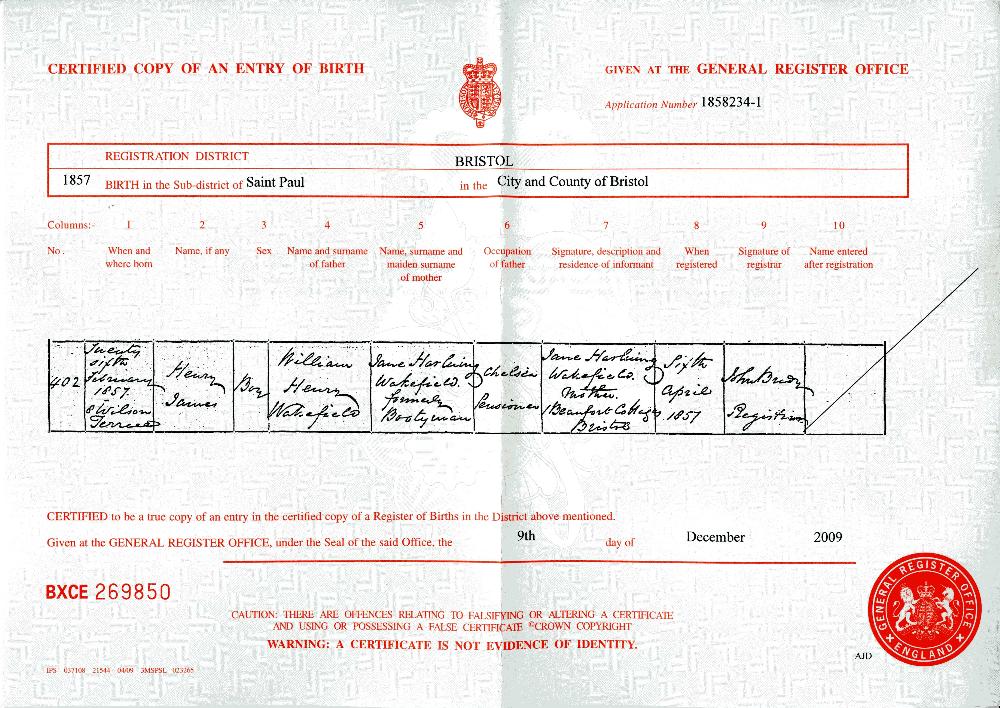 CERTIFIED COPY OF AN ENTRY OF BIRTH
GIVEN AT THE GENERAL REGISTER OFFICE
Application Number 1858234-1
REGISTRATION DISTRICT BRISTOL
1857 BIRTH in the Sub-district of Saint Paul in the City and County of Bristol
Columns:- 1 2 3 4 5 6 7 8 9 10
No. When and where born Name, if any Sex Name and surname of father Name, surname and maiden surname of mother Occupation of father Signature, description and residence of informant When registered Signature of registrar Name entered after registration
402
Twenty
sixth
February
1857
8 Wilson
Terrace
Henry
James
Boy
William
Henry
Wakefield
Jane
Wakefield
formerly
Bootyman
Chelsea
Pensioner
Jane
Wakefield
Mother
1 Beaufort Cottages
Bristol
Sixth
April
1857
John
Registrar
CERTIFIED to be a true copy of an entry in the certified copy of a Register of Births in the District above mentioned.
Given at the GENERAL REGISTER OFFICE, under the Seal of the said Office, the 9th day of December 2009
BXCE 269850
CAUTION: THERE ARE OFFENCES RELATING TO FALSIFYING OR ALTERING A CERTIFICATE
AND USING OR POSSESSING A FALSE CERTIFICATE ©CROWN COPYRIGHT
WARNING: A CERTIFICATE IS NOT EVIDENCE OF IDENTITY.
GENERAL REGISTER OFFICE
ENGLAND
AJD
IPS 037108 21544 04/09 3MSPSL 023265